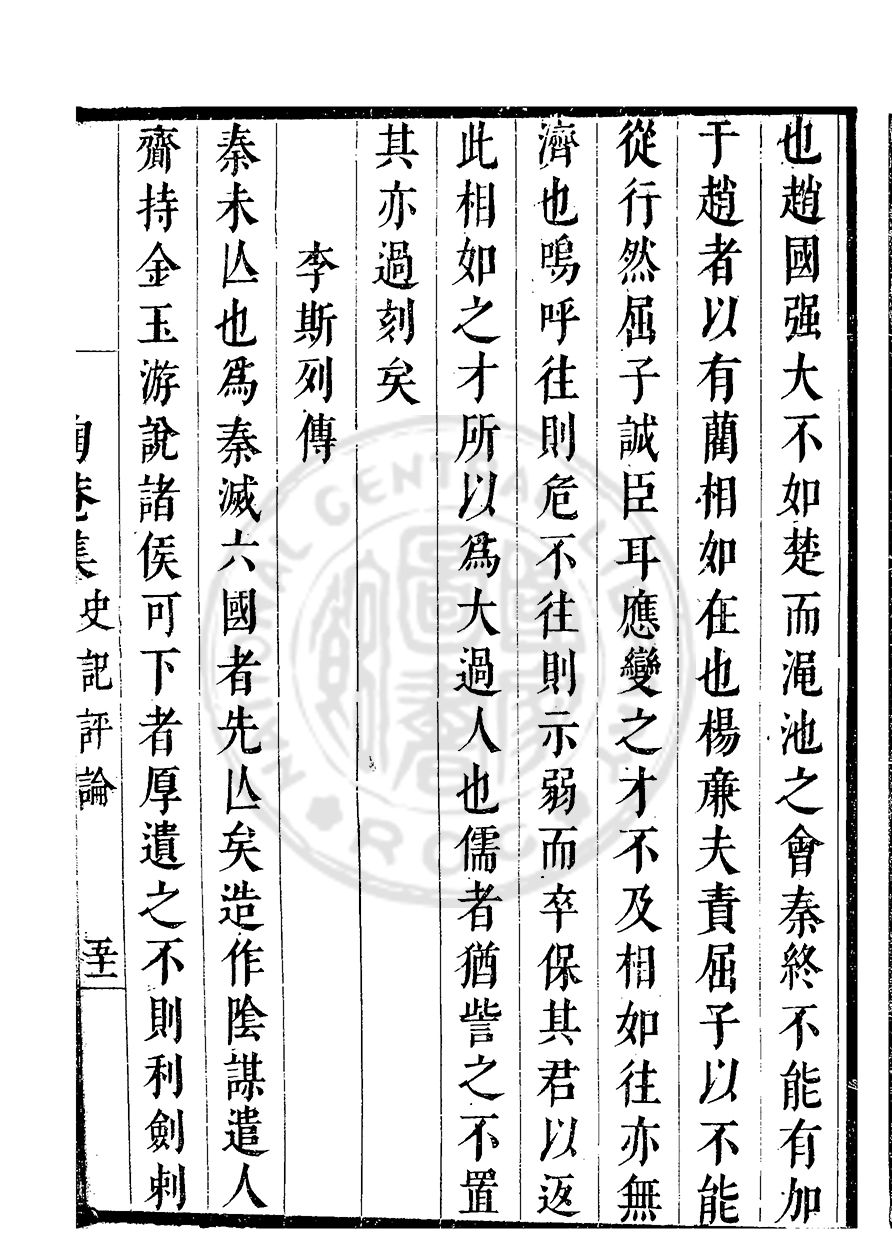 也趙國强大不如楚而澠池之會秦終不能有加
于趙者以有藺相如在也楊亷夫責屈子以不能
從行然屈子誠臣耳應變之才不及相如往亦無
濟也嗚呼往則危不往則示弱而卒保其君以返
此相如之才所以爲大過人也儒者猶訾之不置
其亦過刻矣
李斯列傳
秦未亾也爲秦滅六國者先亾矣造作陰謀遣人
齎持金玉游說諸侯可下者厚遺之不則利劍刺
陶菴集 史記評論 五十二
NATIONAL CENTRAL LIBRARY R.O.C.